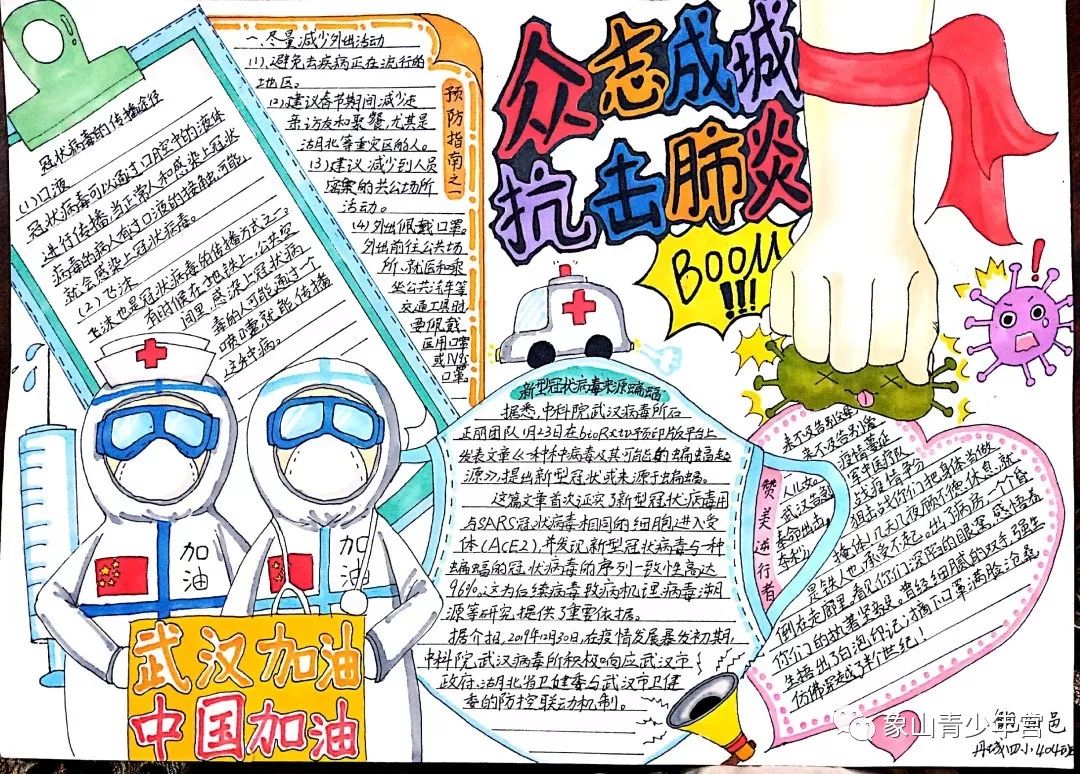 众志成城
抗击肺炎
BOOM
!!!
冠状病毒的传播途径
(1)口液
冠状病毒可以通过口腔空中的液体
进行传播,当正常人和感染上冠状
病毒的病人面对口液的接触,可能
就会感染上冠状病毒。
(2)飞沫
飞沫也是冠状病毒的传播方式之一。
有时候在地铁上,公共空
间里,感染上冠状病
毒的人可能通过一个
喷嚏就能传播
这种病。
预防指南之一
一、尽量减少外出活动
(1)、避免去疾病正在流行的
地区。
(2)建议春节期间减少走
亲访友和聚餐,尤其是
湖北等重灾区的人。
(3)建议减少到人员
密集的共公场所
活动。
(4)外出佩戴口罩。
外出前往公共场
所、就医和乘
坐公共汽车等
交通工具时
要佩戴
医用口罩
或N95
口罩。
加油
加油
武汉加油
中国加油
新型冠状病毒来源蝙蝠
据悉,中科院武汉病毒所石
正丽团队1月23日在bioRxiv预印版平台上
发表文章《一种新病毒及其可能的蝙蝠起
源》,提出新型冠状或来源于蝙蝠。
这篇文章首次证实了新型冠状病毒用
与SARS冠状病毒相同的细胞进入受
体(ACE2),并发现新型冠状病毒与一种
蝙蝠的冠状病毒的序列一致性高达
96%,这为后续病毒致病机理、病毒溯
源等研究提供了重要依据。
据介绍,2019年12月30日,在疫情发展暴发初期,
中科院武汉病毒所积极响应武汉市
政府、湖北省卫健委与武汉市卫健
委的防控联动机制。
赞美逆行者
来不及告别
来不及告别
疫情蔓延
军中医疗队
人儿女。
武汉告急
战疫情争分
狙击战你们把身体当做
掩体,几天几夜顾不得休息,就
是铁人也承受不起。出了病房,一个个昏
倒在走廊里。看见你们深陷的眼窝,感悟着
你们的执着坚毅。曾经细腻的双手,强生
生捂出了白泡,印记
仿佛穿越了半个世纪!
象山青少年宫